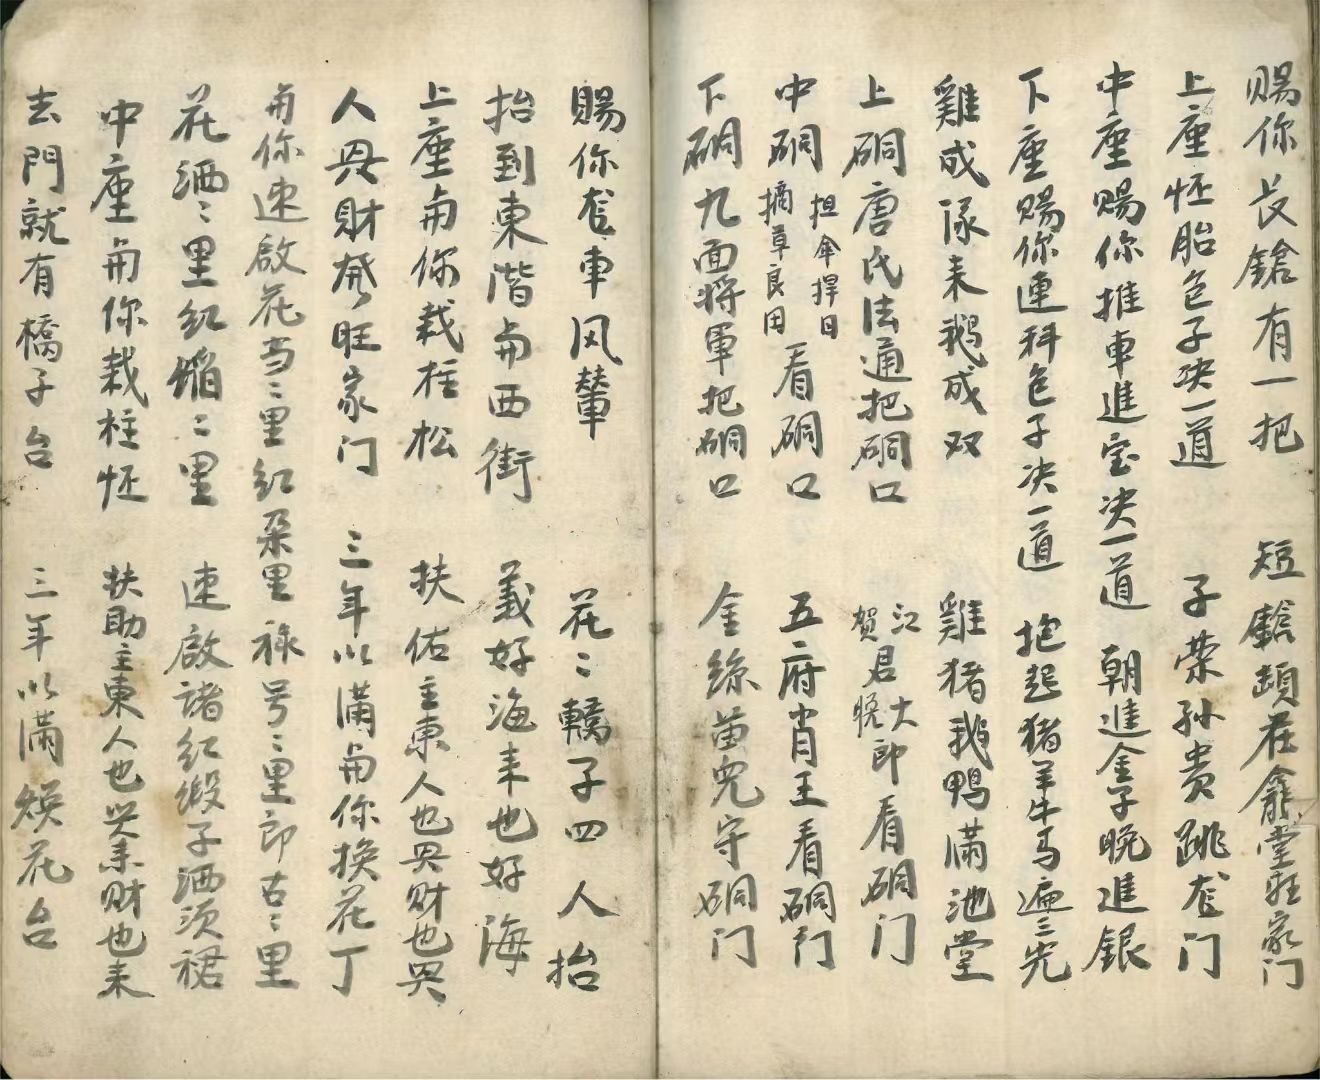 赐你长鎗有一把 短鎗頭在龕堂旺家门
上座怌胎色子决一道 子荣孙贵跳龙门
中座赐你推車進宝决一道 朝進金子晚進銀
下座赐你連科色子决一道 抱起猪羊牛马遍三
雞成隊来鹅成双 雞猪我鴨满池堂
上硐唐氏法通把硐口 江大賀晚君郎看硐门
中硐担傘捍日摘草良田看硐口 五府肖王看硐门
下硐九面将軍把硐口 金絲苗兒守硐门
赐你龙車风輦 花〻轎子四人抬
抬到東階与西街 義好海来也好海
上座与你栽柱松 扶佑主東人也兴财也兴
人兴财发旺家门 三年以满与你换花丁
与你速啟花与〻里红朵里禄号〻里郎古〻里
花洒〻里红〻里 速啟諸红缎子洒须裙
中座与你栽柱怌 扶助主東人也兴来财也来
去門就有橋子台 三年以满焕花台